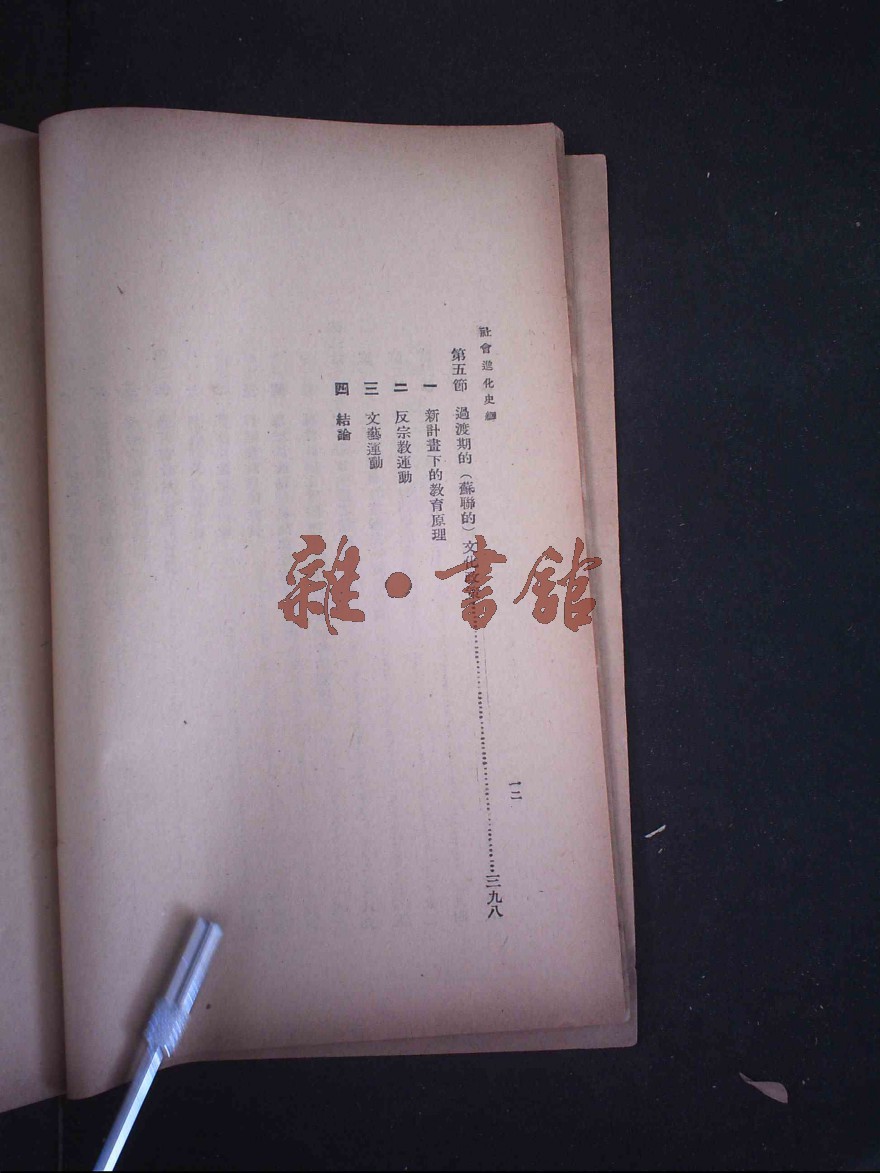 社會進化史綱
一二
第五節　過渡期的(蘇聯的)文化
三九八
一　新計畫下的教育原理
二　反宗教運動
三　文藝運動
四　結論
雜·書館